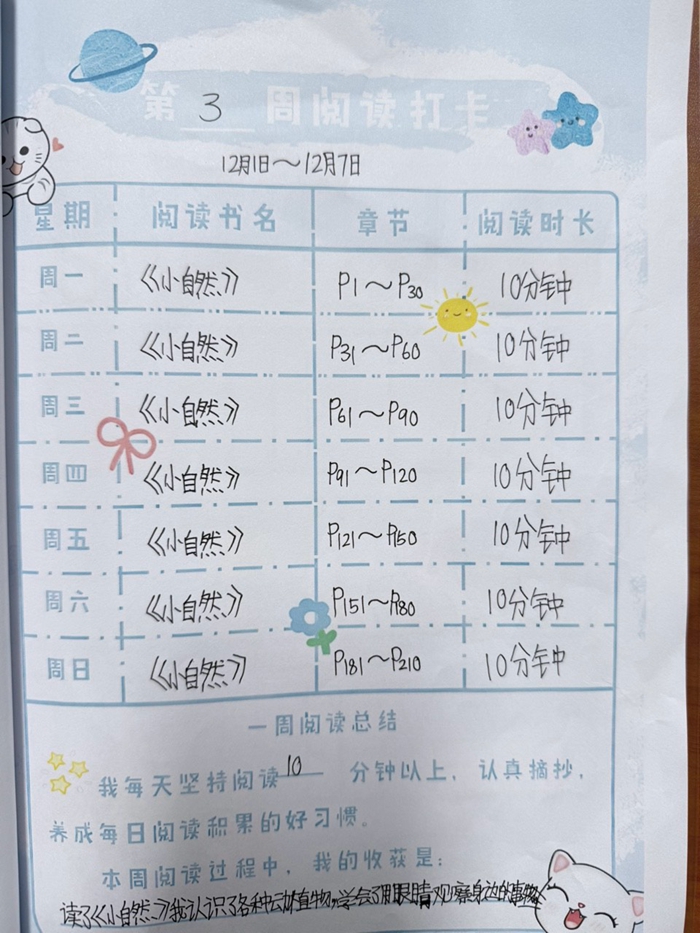 第 3 周阅读打卡
12月1日～12月7日
星期 阅读书名 章节 阅读时长
周一 《小自然》 P1～P30 10分钟
周二 《小自然》 P31～P60 10分钟
周三 《小自然》 P61～P90 10分钟
周四 《小自然》 P91～P120 10分钟
周五 《小自然》 P121～P150 10分钟
周六 《小自然》 P151～P180 10分钟
周日 《小自然》 P181～P210 10分钟
一周阅读总结
我每天坚持阅读 10 分钟以上，认真摘抄，
养成每日阅读积累的好习惯。
本周阅读过程中，我的收获是：
读了《小自然》我认识了各种动植物，学会了用眼睛观察身边的事物